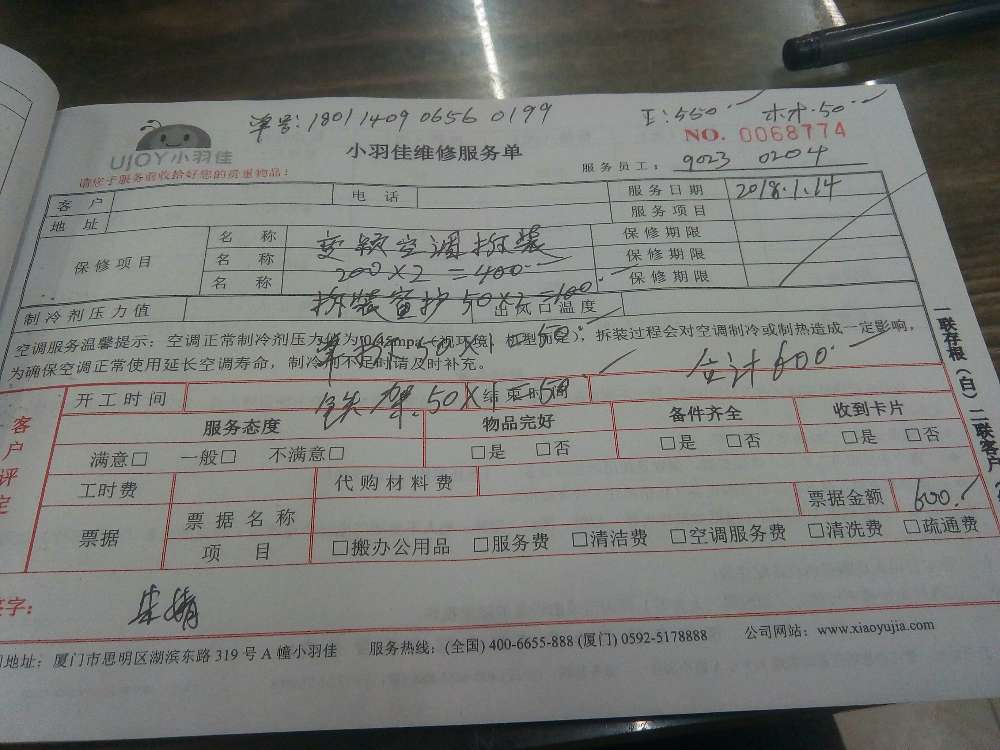 单号:1801 1409 0656 0199
工:550 材:50
NO. 0068774
UJOY小羽佳
小羽佳维修服务单
请您于服务前收拾好您的贵重物品:
服务员工: 9023 0204
客 户 电 话 服务日期 2018.1.14
地 址 服务项目
保修项目 名 称 变频空调拆装 保修期限
名 称 200×2=400 保修期限
名 称 保修期限
制冷剂压力值 拆装 50×2=100 出风口温度
空调服务温馨提示:空调正常制冷剂压力值为 拆装过程会对空调制冷或制热造成一定影响,
为确保空调正常使用延长空调寿命,制冷剂不足时请及时补充。
单拆 50×1=50
合计600
开工时间 铁架.50×1=50 结束时间
客户评定
服务态度 物品完好 备件齐全 收到卡片
满意□ 一般□ 不满意□ □是 □否 □是 □否 □是 □否
工时费 代购材料费 票据金额 600.
票据 票据名称
项 目 □搬办公用品 □服务费 □清洁费 □空调服务费 □清洗费 □疏通费
一联存根(白)二联客户
签字:
地址:厦门市思明区湖滨东路 319 号 A 幢小羽佳 服务热线:(全国) 400-6655-888 (厦门) 0592-5178888 公司网站:www.xiaoyujia.com